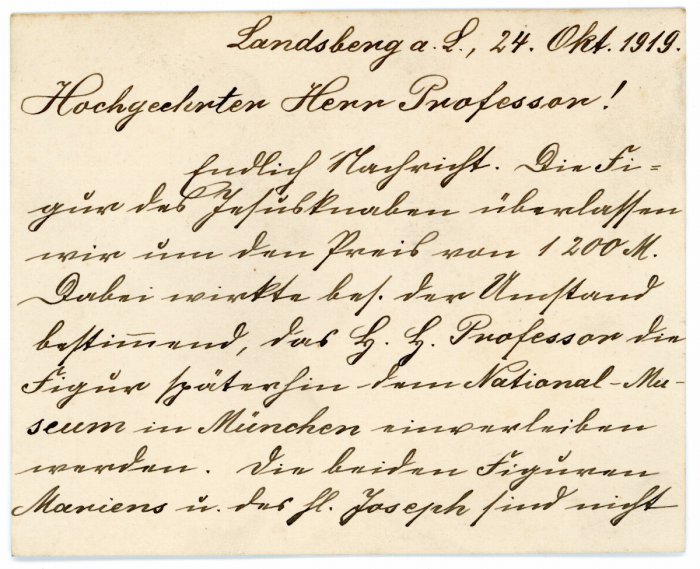 Landsberg a. L., 24. Okt. 1919.
Hochgeehrter Herr Professor!
Endlich Nachricht. Die Fi=
gur des Jesusknaben überlassen
wir um den Preis von 1 200 M.
Dabei wirkte bes. der Umstand
bestim̅end, das H. H. Professor die
Figur späterhin dem National-Mu-
seum in München einverleiben
werden. Die beiden Figuren
Mariens u. des hl. Joseph sind nicht